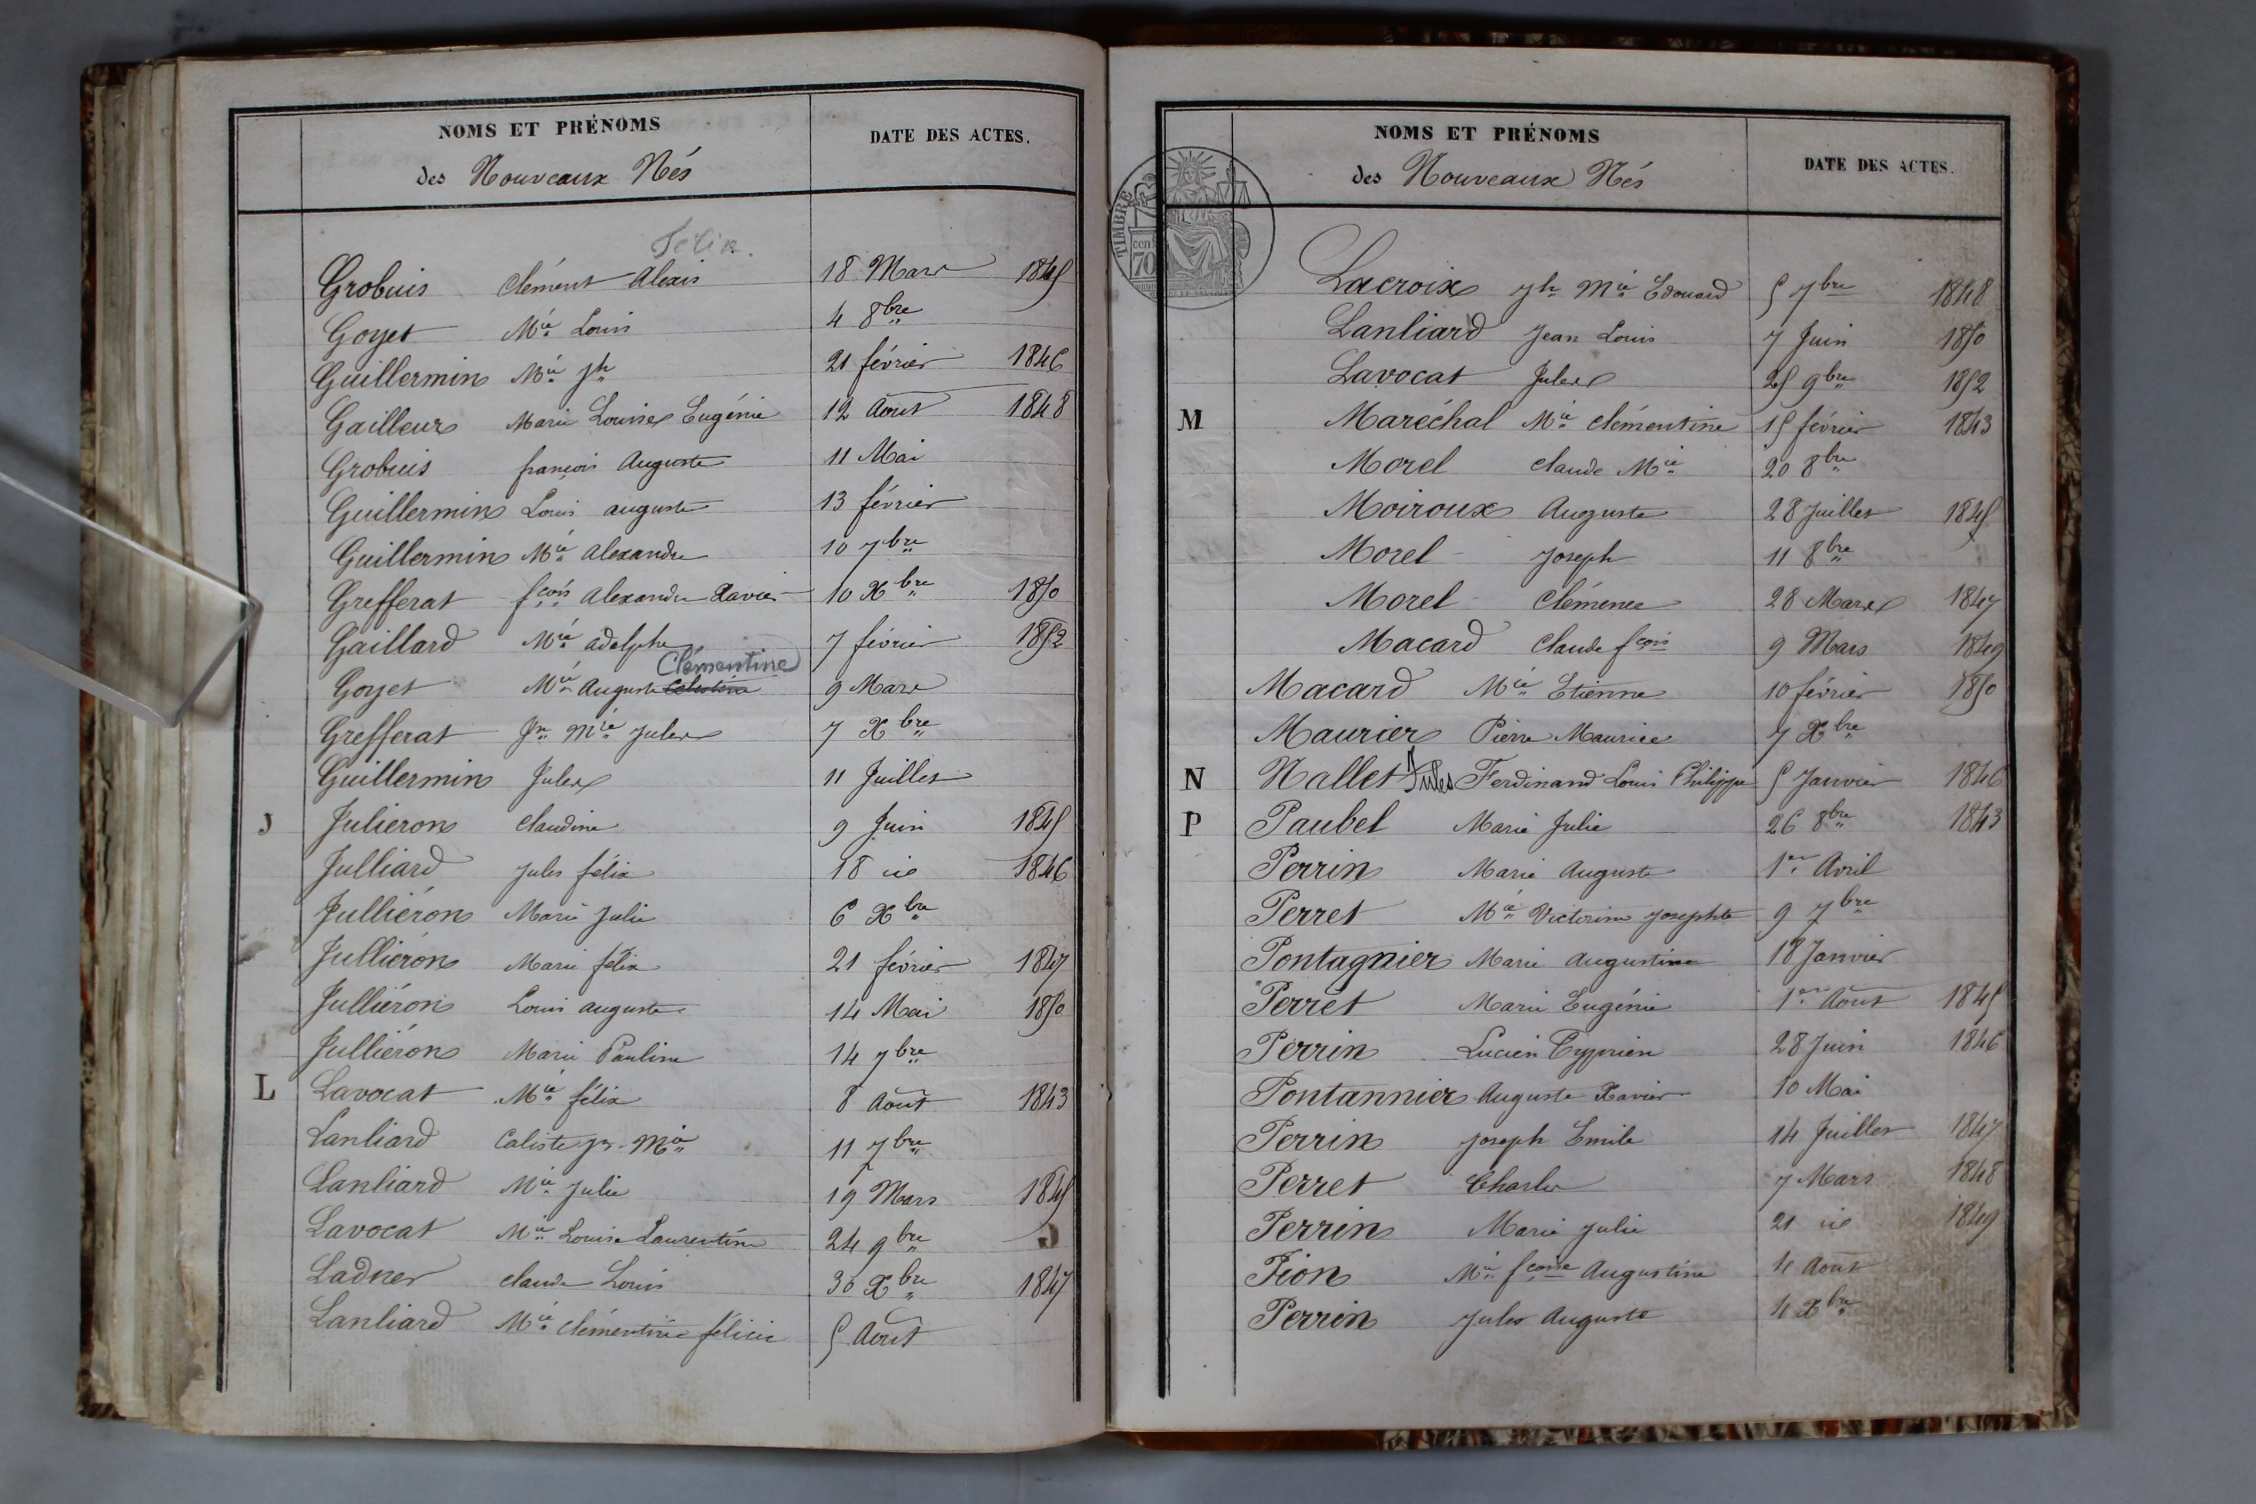 NOMS ET PRÉNOMS DATE DES ACTES.
des Nouveaux Nés
Félix.
Grobuis Clément Alexis 18 Mars 1845
Goyet Mie Louis 4 8bre
Guillermin Mie Jh 21 février 1846
Gailleur Marie Louise Eugénie 12 Août 1848
Grobuis françois Auguste 11 Mai
Guillermin Louis auguste 13 février
Guillermin Mie alexandre 10 7bre
Grefferat fçois alexandre Xavier 10 Xbre 1850
Gaillard Mie adolphe 7 février 1852
Clémentine
Goyet Mie Auguste Celestine 9 Mars
Grefferat Jn Mie Jules 7 Xbre
Guillermin Jules 11 Juillet
J Julieron Claudine 9 Juin 1845
Julliard Jules félix 18 id 1846
Julliéron Marie Julie 6 Xbre
Julliéron Marie félix 21 février 1847
Julliéron Louis auguste 14 Mai 1850
Julliéron Marie Pauline 14 7bre
L Lavocat Mie félix 8 Août 1843
Lanliard Caliste Jn Mie 11 7bre
Lanliard Mie Julie 19 Mars 1845
Lavocat Mie Louise Laurentine 24 9bre
Ladner Claude Louis 30 Xbre 1847
Lanliard Mie Clémentine félicie 5 Août
NOMS ET PRÉNOMS DATE DES ACTES.
des Nouveaux Nés
TIMBRE
cent
70
Lacroix Jh Mie Edouard 5 7bre 1848
Lanliard Jean Louis 7 Juin 1850
Lavocat Jules 25 9bre 1852
M Maréchal Mie Clémentine 15 février 1843
Morel Claude Mie 20 8bre
Moiroux Auguste 28 Juillet 1845
Morel Joseph 11 8bre
Morel Clémence 28 Mars 1847
Macard Claude fçois 9 Mars 1849
Macard Mie Etienne 10 février 1850
Maurier Pierre Maurice 7 Xbre
N Nallet Jules Ferdinand Louis Philippe 5 Janvier 1846
P Paubel Marie Julie 26 8bre 1843
Perrin Marie Auguste 1er Avril
Perret Mie Victorine Josephte 9 7bre
Pontagnier Marie Augustine 18 Janvier
Perret Marie Eugénie 1er Août 1845
Perrin Lucien Cyprien 28 Juin 1846
Pontannier Auguste Xavier 10 Mai
Perrin Joseph Emile 14 Juillet 1847
Perret Charles 7 Mars 1848
Perrin Marie Julie 21 id 1849
Pion Mie fçoise Augustine 4 Août
Perrin Jules Auguste 4 Xbre